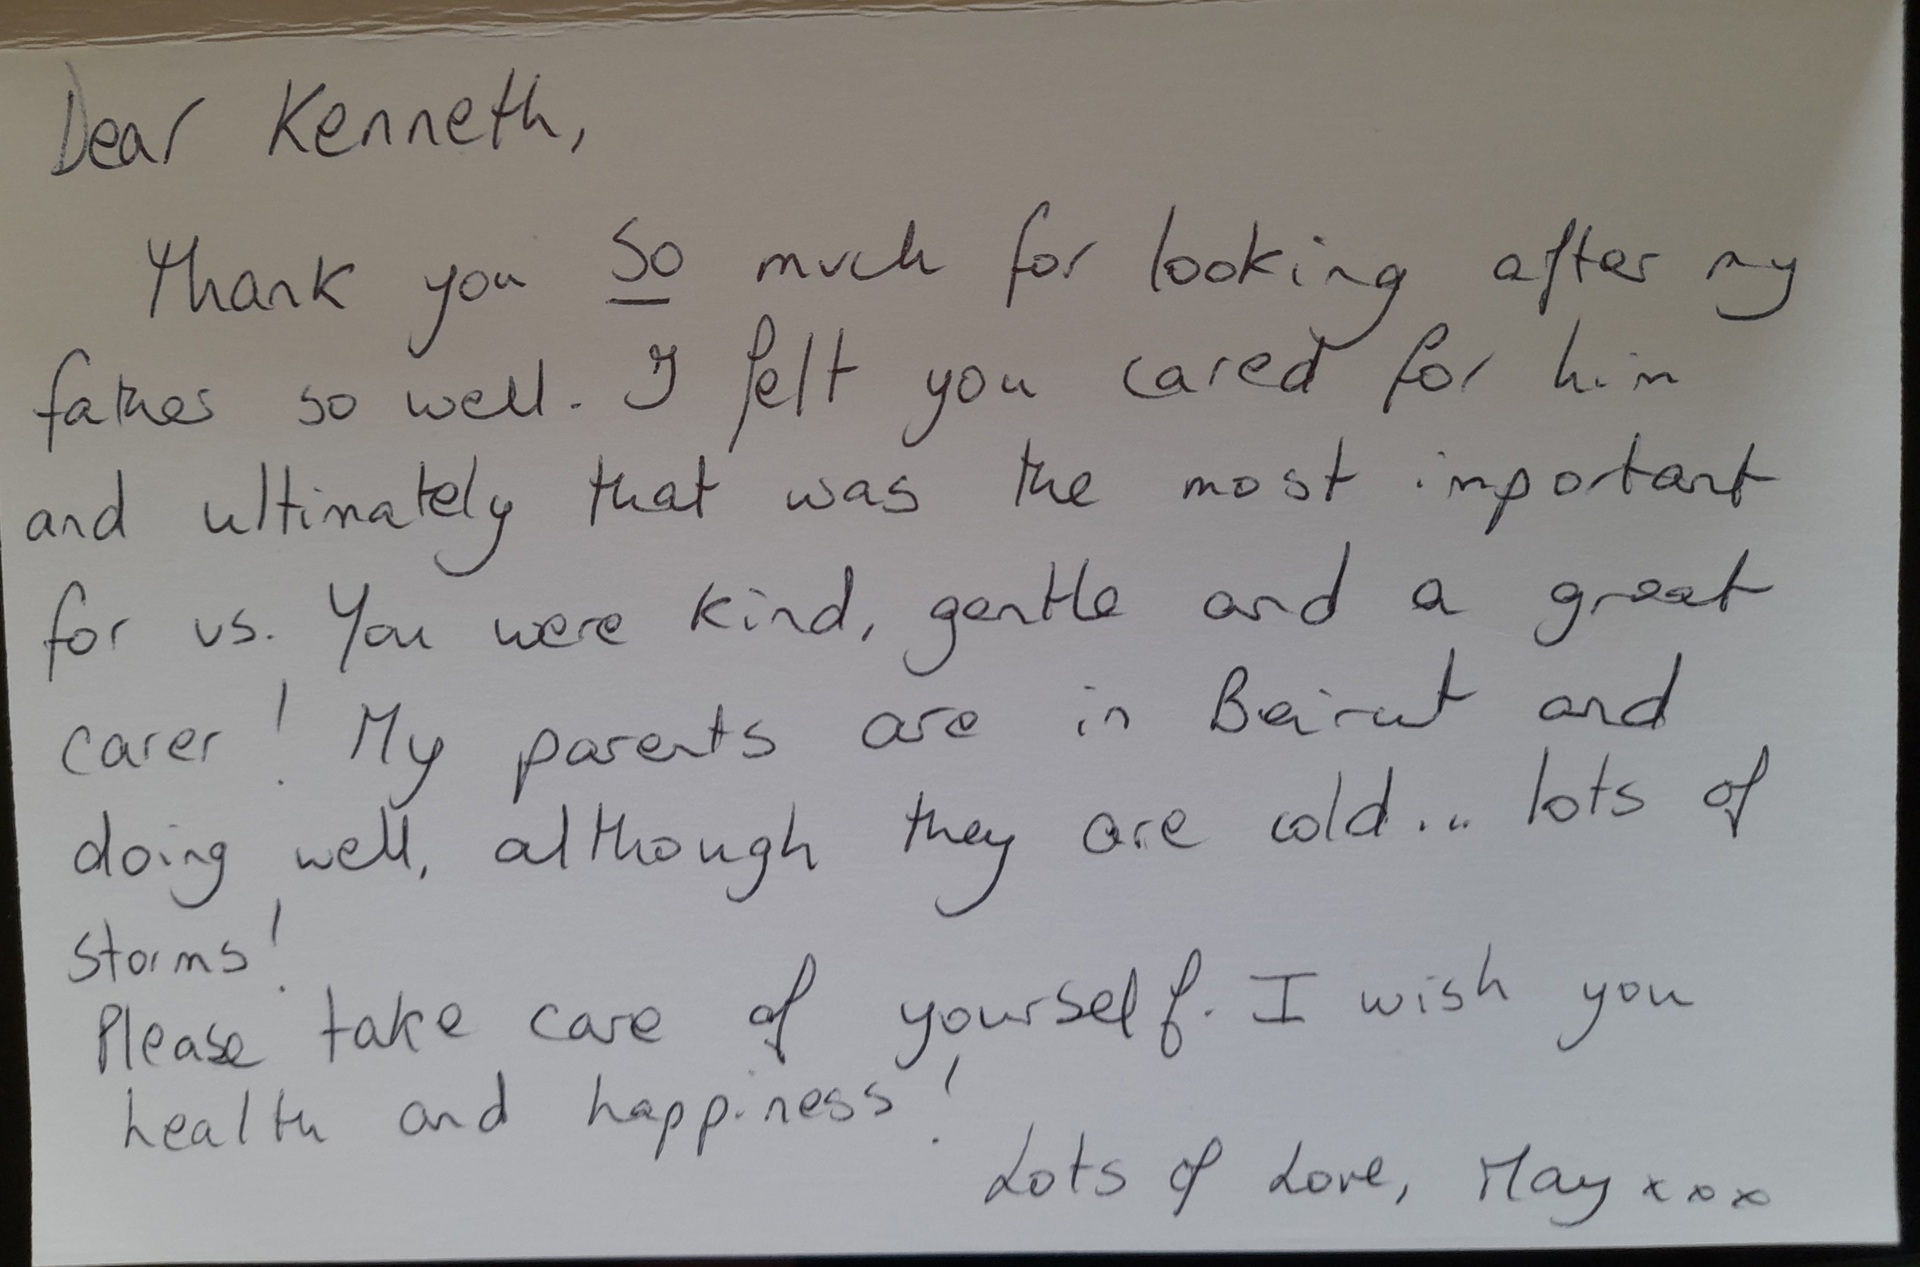 Dear Kenneth,
Thank you so much for looking after my
father so well. I felt you cared for him
and ultimately that was the most important
for us. You were kind, gentle and a great
carer! My parents are in Beirut and
doing well, although they are cold... lots of
storms!
Please take care of yourself. I wish you
health and happiness!
Lots of Love, May xxx